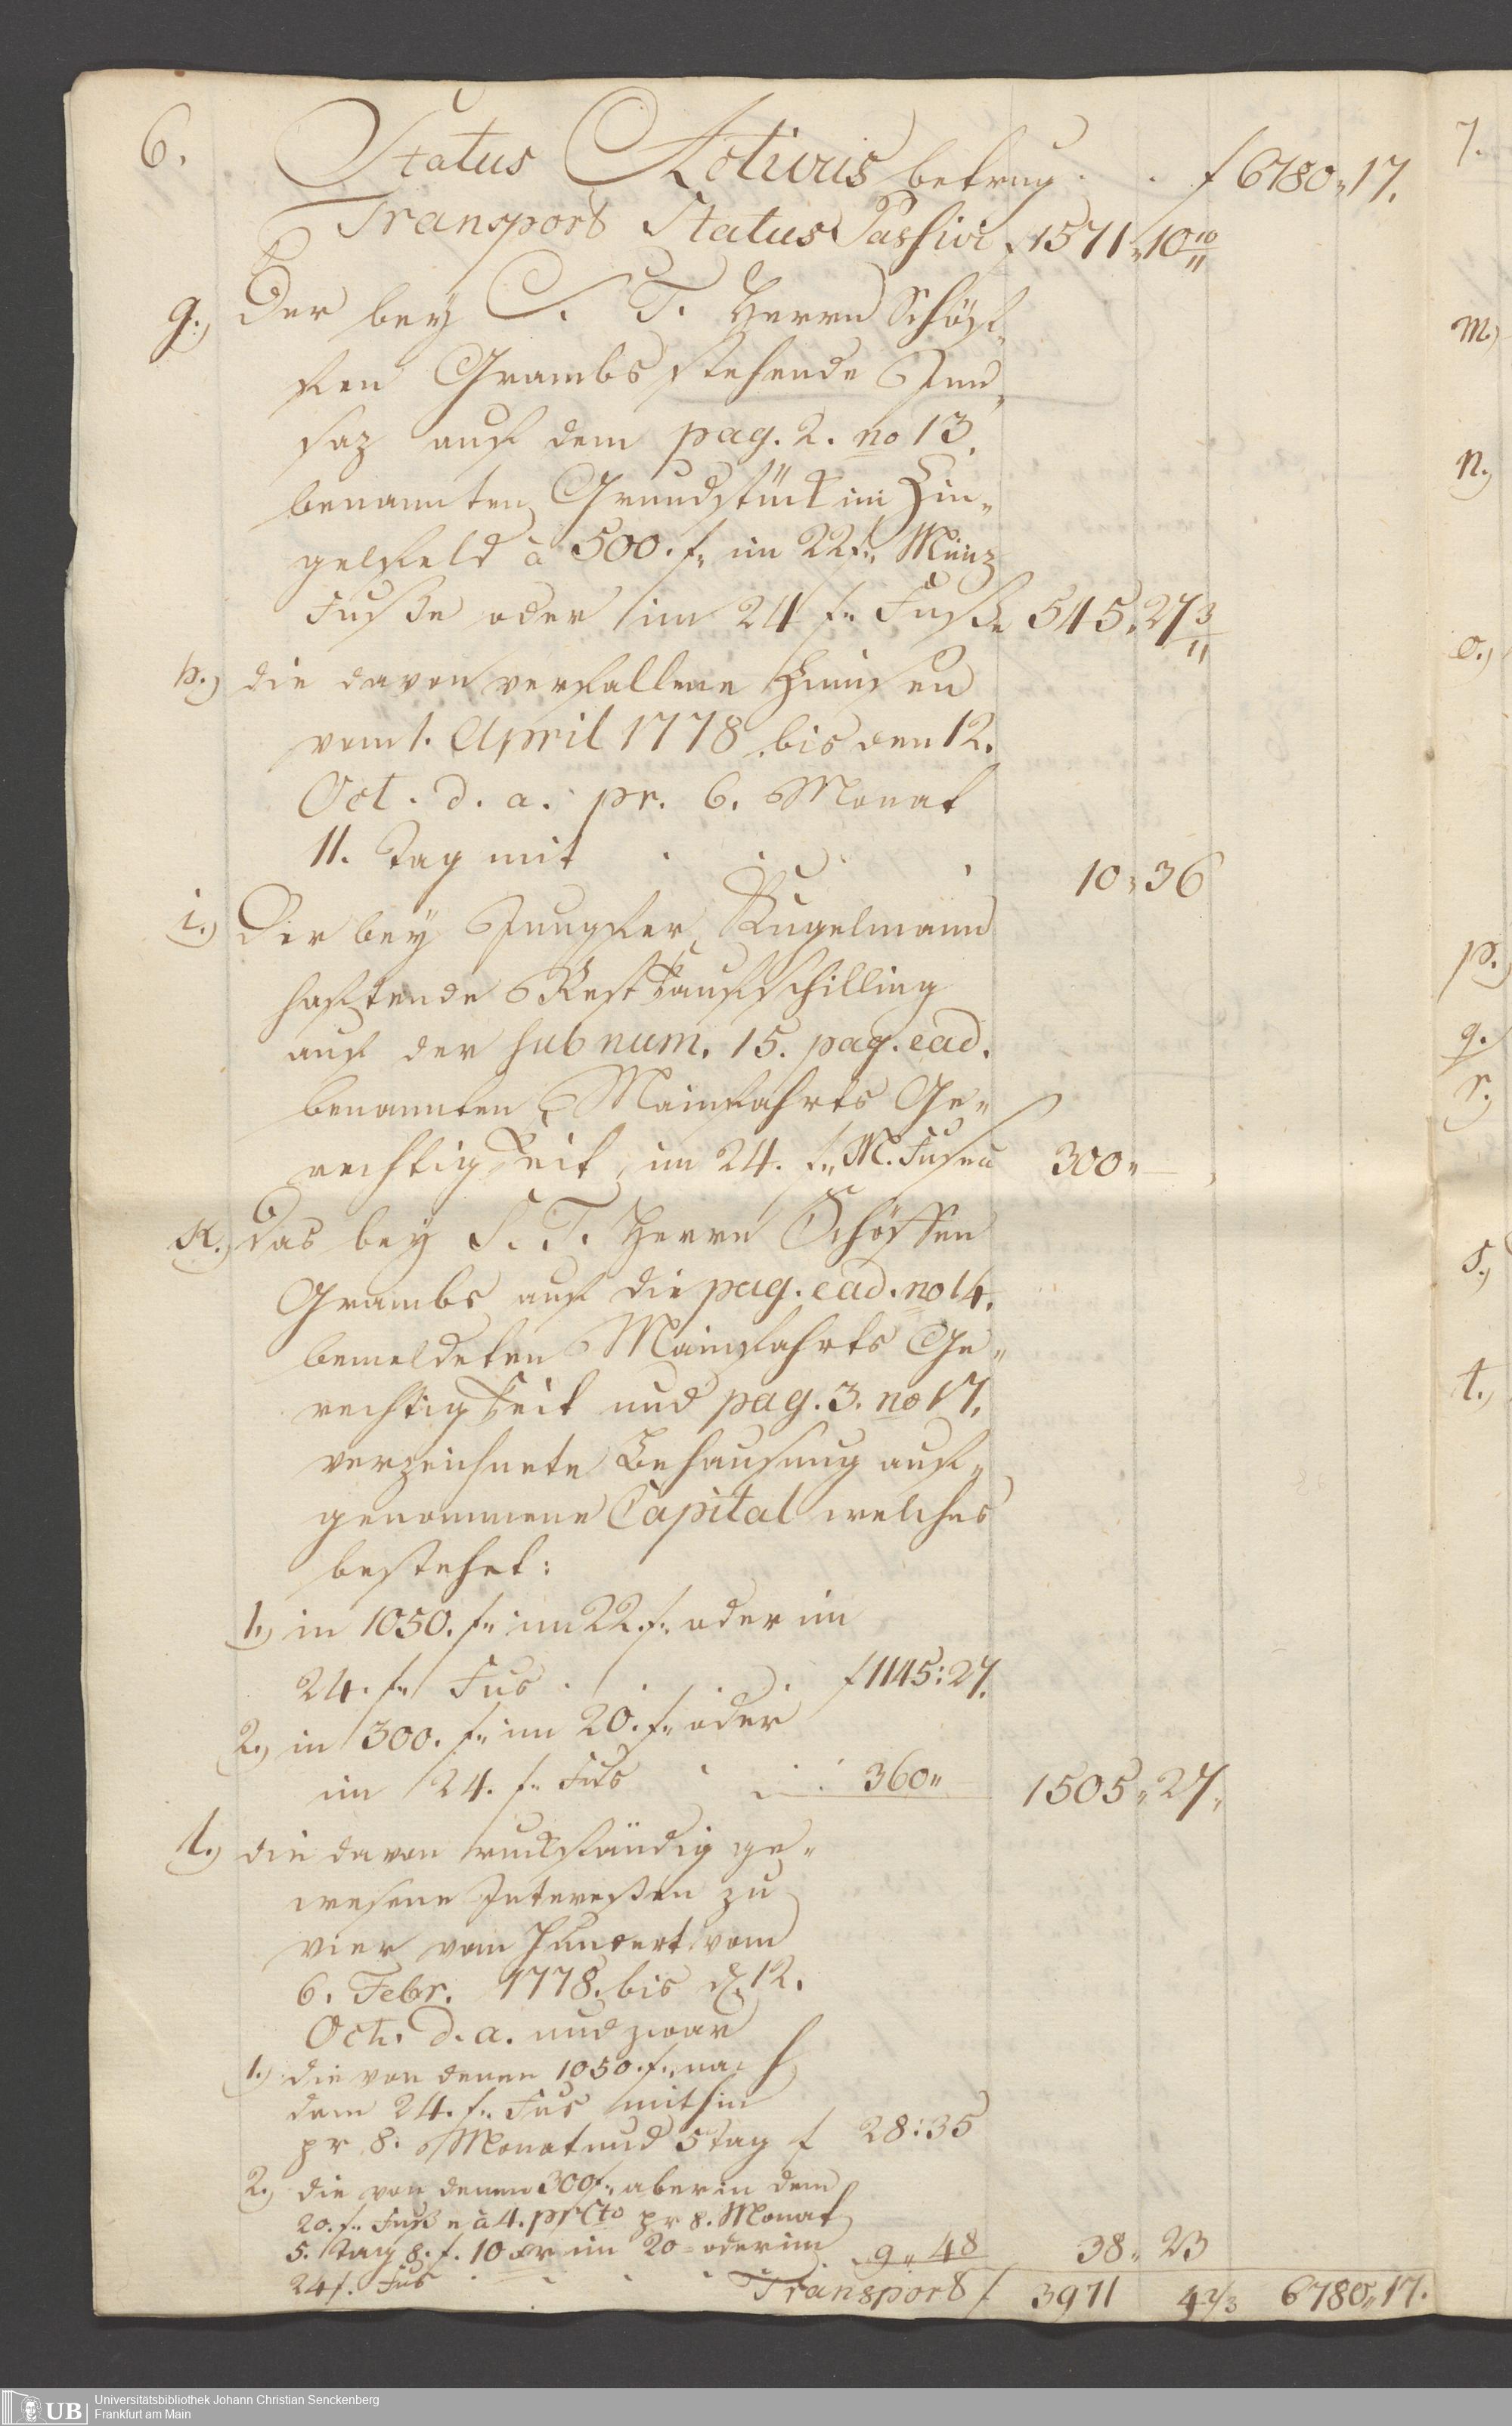 6.
Status Activus betrug . . f 6780 „ 17.
Transport Status Passivi f 1571 „ 10 10/11
g.) Der bey S. T. Herrn Schöf-
fen Grambs stehende Inn-
saz auf dem pag. 2. no 13.
benannten Grundstück im Hin-
gelfeld à 500. f„ im 22 f„ Münz
Fusse oder im 24 f„ Fusse 545 „ 27 3/11
h.) die davon verfallene Zinnsen
vom 1. April 1778 bis den 12.
Oct. d. a. pr. 6. Monat
11. Tag mit . . . . 10 „ 36
i.) Der bey Jungfer Kugelmann
haftende Rest Kaufschilling
auf der sub num. 15. pag. ead.
benannten Mainfahrts Ge-
rechtigkeit, im 24. f„ M. Fusen 300 „ —
K.) Das bey S. T. Herrn Schöffen
Grambs auf die pag. ead. no 14.
bemeldeten Mainfahrts Ge-
rechtigkeit und pag. 3. no 17.
verzeichnete Behausung auf-
genommene Capital welches
bestehet:
1.) in 1050. f„ im 22. f„ oder im
24. f„ Fus . . . . f 1145 : 27.
2.) in 300. f„ im 20. f„ oder
im 24. f„ Fus . . . 360 „ — 1505 „ 27 „
l.) die davon ruckständig ge-
wesene Interessen zu
vier vom Hundert vom
6. Febr. 1778. bis d. 12.
Oct. d. a. und zwar
1.) die von denen 1050. f„ nach
dem 24. f„ Fus mithin
pr 8. Monat und 5 Tag f 28 : 35
2.) die von denen 300 f„ aber in dem
20. f„ Fuss à 4. pr Cto pr 8. Monat
5. Tag 8. f. 10 xr im 20 = oder im
24 f. Fus . . . . 9 „ 48 38 „ 23
Transport f 3971 4 2/3 6780 „ 17.
7.
m.)
n.)
o.)
p.)
q.)
r.)
s.)
t.)
UB
Universitätsbibliothek Johann Christian Senckenberg
Frankfurt am Main